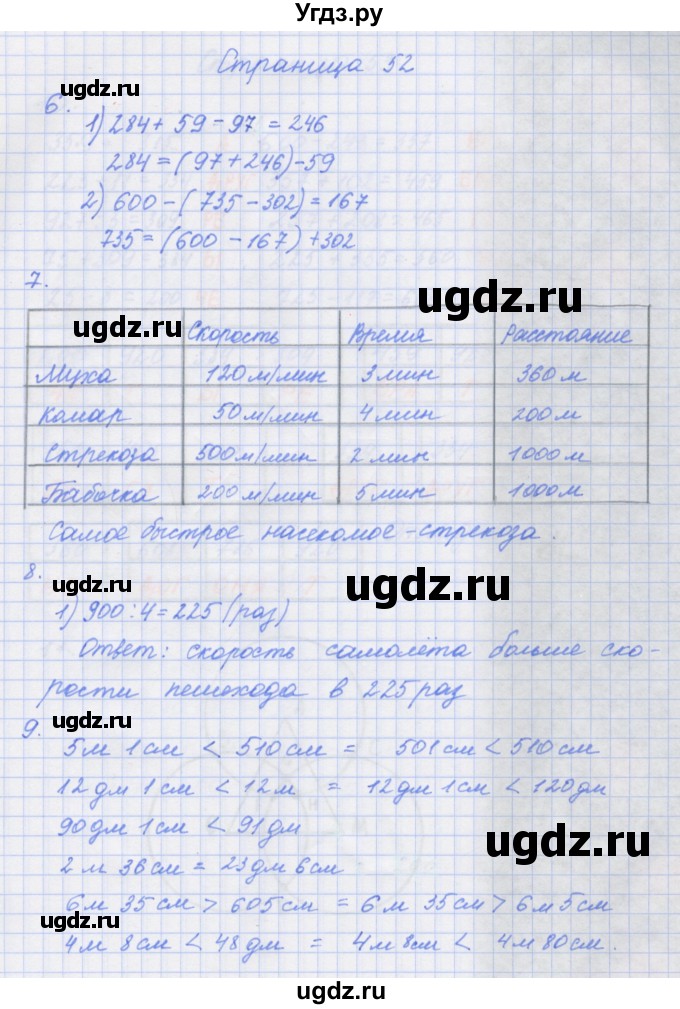 Угдз.ру
Страница 52
6.
1) 284 + 59 - 97 = 246
284 = (97 + 246) - 59
2) 600 - (735 - 302) = 167
735 = (600 - 167) + 302
ugdz.ru
7.
ugdz.ru Скорость Время Расстояние
Муха 120 м/мин 3 мин 360 м
Комар 50 м/мин 4 мин 200 м
Стрекоза 500 м/мин 2 мин 1000 м
Бабочка 200 м/мин 5 мин 1000 м
Самое быстрое насекомое - стрекоза.
8.
ugdz.ru ugdz.ru
1) 900 : 4 = 225 (раз)
Ответ: скорость самолёта больше ско-
рости пешехода в 225 раз
ugdz.ru
9.
5 м 1 см < 510 см = 501 см < 510 см
12 дм 1 см < 12 м = 12 дм 1 см < 120 дм
90 дм 1 см < 91 дм
ugdz.ru
2 м 36 см = 23 дм 6 см
6 м 35 см > 605 см = 6 м 35 см > 6 м 5 см
ugdz.ru
4 м 8 см < 48 дм = 4 м 8 см < 4 м 80 см.
ugdz.ru